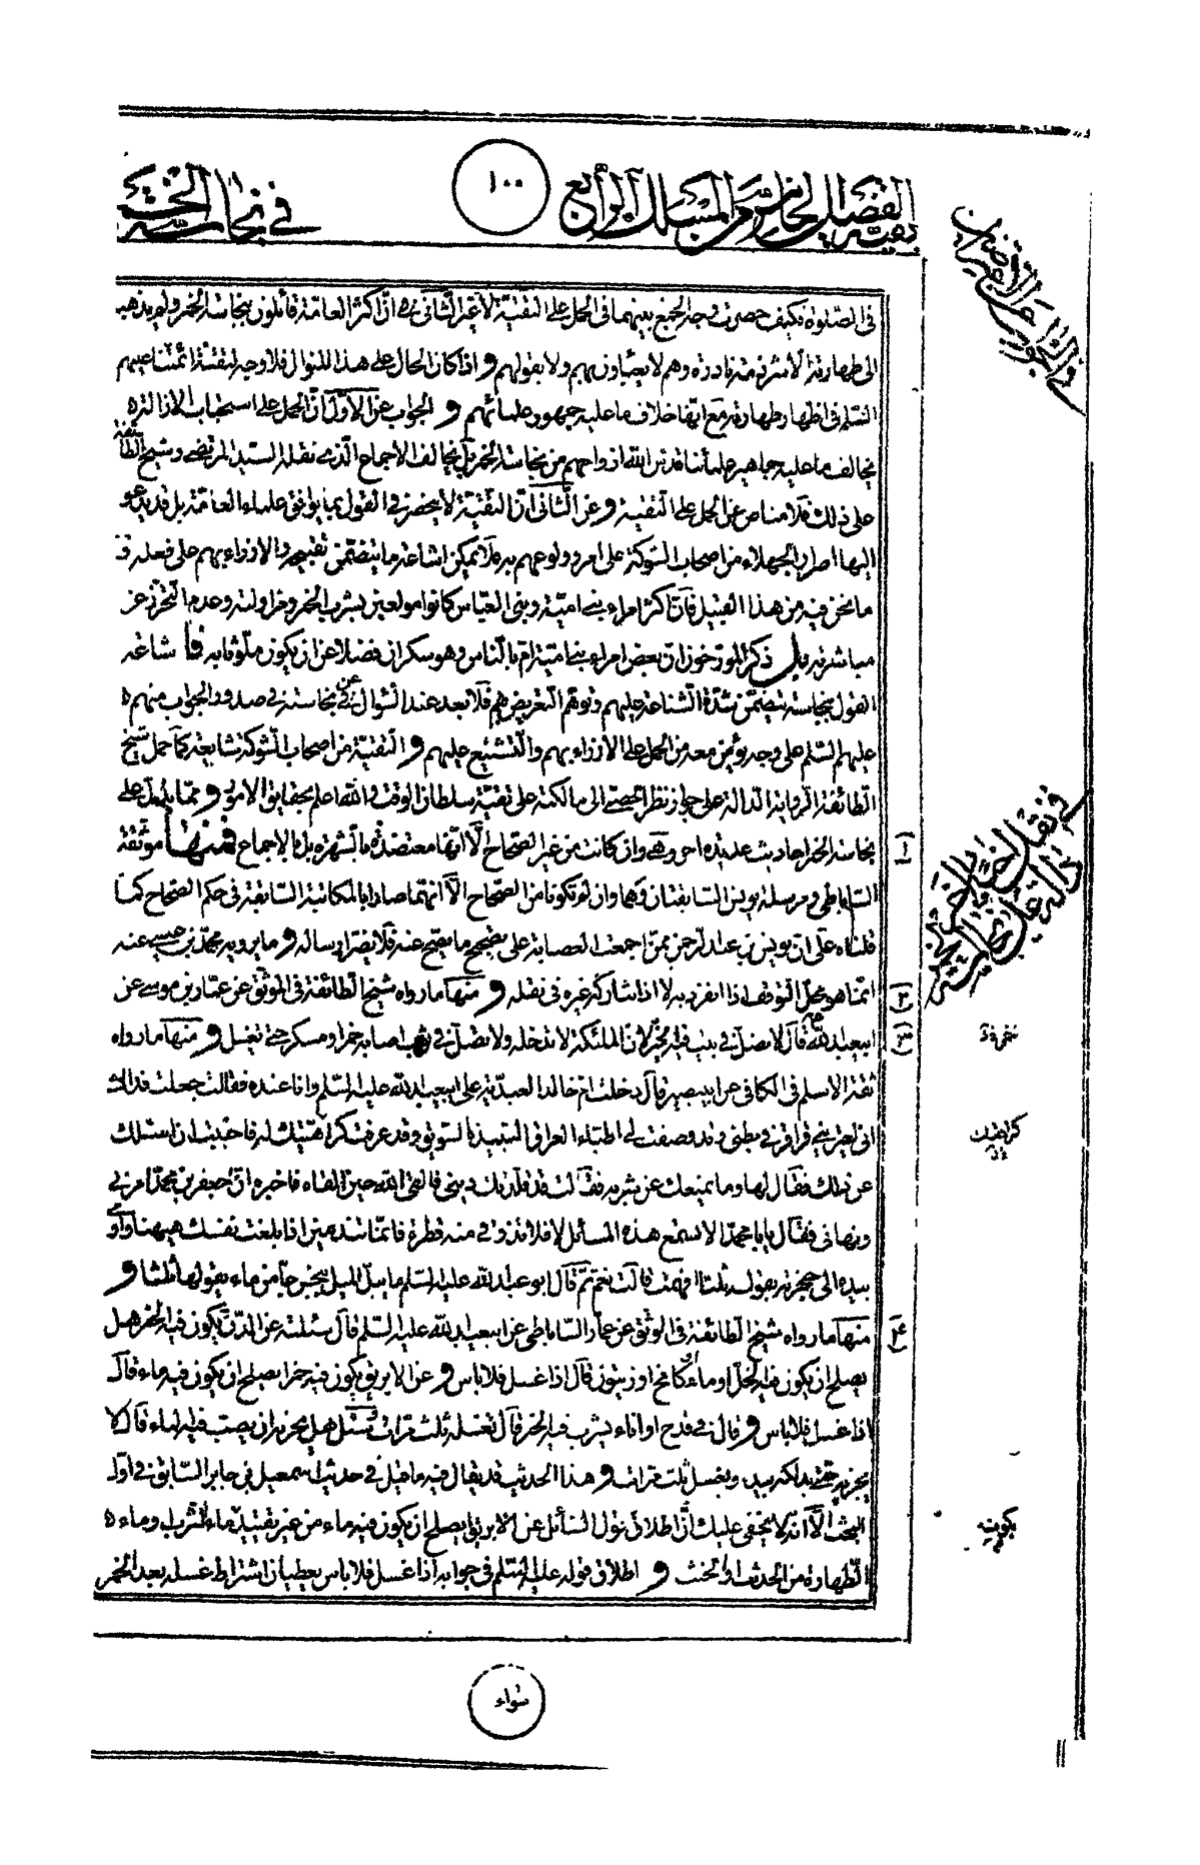 بقية الفصل الخامس من المسلك الرابع
١٠٠
في نجاسة الخمر
في الصلوة فكيف حصرت وجه الجمع بينهما في الحمل على التقية لا غير الثاني ان اكثر العامة قائلون بنجاسة الخمر ولم يذهب
الى طهارته الا شرذمة نادرة وهم لا يعباون بهم ولا بقولهم و اذا كان الحال على هذا المنوال فلا وجه لتقية ائمتنا عليهم
السلم في اظهار طهارته مع انها خلاف ما عليه جمهور علمائهم و الجواب عن الاول ان الحمل على استحباب الازالة
يخالف ما عليه جماهير علمائنا قدس الله ارواحهم من نجاسة الخمر بل يخالف الاجماع الذي نقله السيد المرتضى وشيخ الطائفة
على ذلك فلا مناص عن الحمل على التقية و عن الثاني ان التقية لا ينحصر في القول بما يوافق علماء العامة بل قد يدعو
اليها اصرار الجهلاء من اصحاب الشوكة على امر وولوعهم به فلا يمكن اشاعة ما يتضمن تقبيحه والازراء بهم على فعله
ما نحن فيه من هذا القبيل فان اكثر امراء بني امية وبني العباس كانوا مولعين بشرب الخمر ومزاولته وعدم التحرز عن
مباشرته بل ذكر المورخون ان بعض امراء بني امية ام بالناس وهو سكران فضلا عن ان يكون ملوثا به فاشاعة
القول بنجاسته يتضمن شدة الشناعة عليهم وتوهم التعريض بهم فلا بعد عند السؤال عن نجاسته في صدور الجواب منهم
عليهم السلم على وجه يؤمن معه من الحمل على الازراء بهم والتشنيع عليهم و التقية من اصحاب الشوكة شايعة كما حمل شيخ
الطائفة الرواية الدالة على جواز نظر الخصي الى مالكته على تقية سلطان الوقت والله اعلم بحقايق الامور و مما يدل على
نجاسة الخمر احاديث عديدة اخر وهي وان كانت من غير الصحاح الا انها معتضدة بالشهرة بل بالاجماع فمنها موثقة
الساباطي ومرسلة يونس السابقتان وهما وان لم تكونا من الصحاح الا انهما صارا بالمكاتبة السابقة في حكم الصحاح كما
قلناه على ان يونس بن عبد الرحمن ممن اجمعت العصابة على تصحيح ما يصح عنه فلا يضر ارساله و ما يرويه محمد بن عيسى عنه
انما هو محل التوقف اذا انفرد به لا اذا شاركه غيره في نقله و منها ما رواه شيخ الطائفة في الموثق عن عمار بن موسى عن
ابي عبد الله قال لا تصل في بيت فيه خمر لان الملئكة لا تدخله ولا تصل في ثوب اصابه خمر او مسكر حتى تغسل و منها ما رواه
ثقة الاسلم في الكافي عن ابي بصير قال دخلت ام خالد العبدية على ابي عبد الله عليه السلم وانا عنده فقالت جعلت فداك
اني يعتريني قراقر في بطني وقد وصفت لي اطباء العراق النبيذ بالسويق وقد عرفت كراهتيك له فاحببت ان اسئلك
عن ذلك فقال لها وما يمنعك عن شربه فقالت قد قلدتك ديني فالقى الله حين القاه فاخبره ان جعفر بن محمد امرني
ونهاني فقال يابا محمد الا تسمع هذه المسائل لا فلا تذوقي منه قطرة فانما تندمين اذا بلغت نفسك هيهنا واومى
بيده الى حنجرته يقولـه ثلثا افهمت قالت نعم ثم قال ابو عبد الله عليه السلم ما يبل الميل ينجس حبا من ماء يقولها ثلثا و
منها ما رواه شيخ الطائفة في الموثق عن عمار الساباطي عن ابي عبد الله عليه السلم قال سئلته عن الدن يكون فيه الخمر هل
يصلح ان يكون فيه الخل او ماء كامخ او زيتون قال اذا غسل فلا باس و عن الابريق يكون فيه خمر ايصلح ان يكون فيه ماء قال
اذا غسل فلا باس و قال في قدح او اناء يشرب فيه الخمر قال تغسله ثلث مرات سئل هل يجزيه ان يصب فيه الماء قال لا
يجزيه حتى يدلكه بيده ويغسل ثلث مرات و هذا الحديث قد يقال فيه ما قيل في حديث اسمعيل بن جابر السابق في اول
البحث الا انه لا يخفى عليك ان اطلاق قول السائل عن الابريق ايصلح ان يكون فيه ماء من غير تقييد بماء الشرب او ماء
الطهارة من الحدث او الخبث و اطلاق قوله عليه السلم في جوابه اذا غسل فلا باس يعطيان اشتراط غسله بعد الخمر
١
٢
٣
٤
كراهتك
يكون
سواء